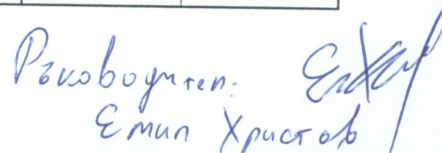 Ръководител:
Емил Христов